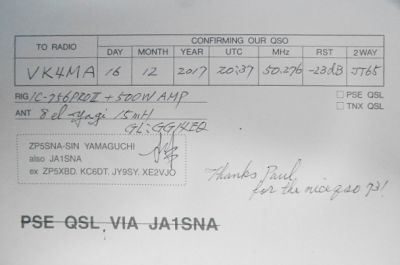 CONFIRMING OUR QSO
TO RADIO DAY MONTH YEAR UTC MHz RST 2WAY
VK4MA 16 12 2017 20:37 50.276 -23dB JT65
RIG IC-756PROII + 500W AMP
□ PSE QSL
ANT 8 el Yagi 15mH
□ TNX QSL
GL: GG14EQ
ZP5SNA-SIN YAMAGUCHI
also JA1SNA
ex ZP5XBD. KC6DT. JY9SY. XE2VJO
Thanks Paul.
for the nice qso 73!
PSE QSL VIA JA1SNA